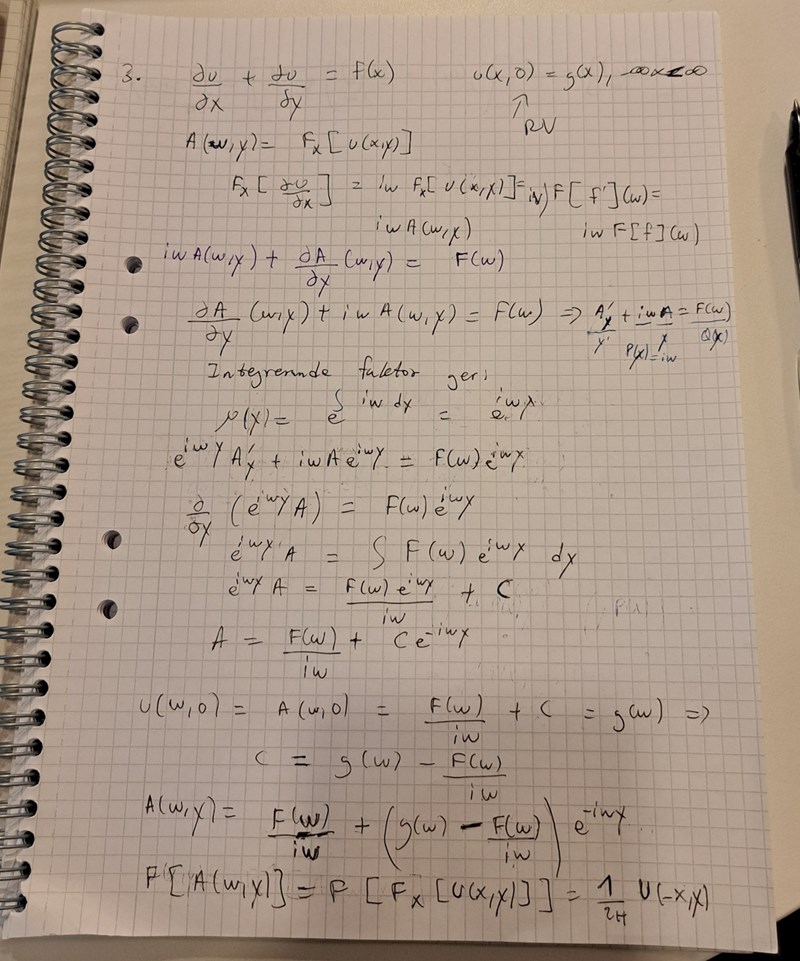 3. ∂u/∂x + ∂u/∂y = f(x) u(x,0) = g(x), -∞<x<∞
↑
RV
A(w,y) = Fx[u(x,y)]
Fx[∂u/∂x] = iw Fx[u(x,y)] = iv) F[f'](w) =
iw A(w,y) iw F[f](w)
iw A(w,y) + ∂A/∂y (w,y) = F(w)
∂A/∂y (w,y) + iw A(w,y) = F(w) ⇒ A'y + iw A = F(w)
y' P(x)=iw y Q(x)
Integrerende faktor ger:
μ(y) = e^∫ iw dy = e^iwy
e^iwy A'y + iwA e^iwy = F(w) e^iwy
∂/∂y (e^iwy A) = F(w) e^iwy
e^iwy A = ∫ F(w) e^iwy dy
e^iwy A = F(w) e^iwy/iw + C
A = F(w)/iw + C e^-iwy
U(w,0) = A(w,0) = F(w)/iw + C = g(w) ⇒
C = g(w) - F(w)/iw
A(w,y) = F(w)/iw + (g(w) - F(w)/iw) e^-iwy
F[A(w,y)] = F[Fx[u(x,y)]] = 1/2π u(-x,y)